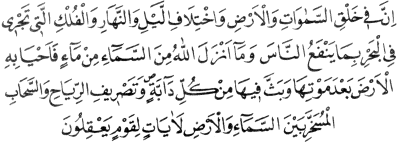 اِنَّ ف۪ي خَلْقِ السَّمٰوَاتِ وَالْاَرْضِ وَاخْتِلَافِ الَّيْلِ وَالنَّهَارِ وَالْفُلْكِ الَّت۪ي تَجْر۪ي
فِي الْبَحْرِ بِمَا يَنْفَعُ النَّاسَ وَمَٓا اَنْزَلَ اللّٰهُ مِنَ السَّمَٓاءِ مِنْ مَٓاءٍ فَاَحْيَا بِهِ
الْاَرْضَ بَعْدَ مَوْتِهَا وَبَثَّ ف۪يهَا مِنْ كُلِّ دَٓابَّةٍۖ وَتَصْر۪يفِ الرِّيَاحِ وَالسَّحَابِ
الْمُسَخَّرِ بَيْنَ السَّمَٓاءِ وَالْاَرْضِ لَاٰيَاتٍ لِقَوْمٍ يَعْقِلُونَ